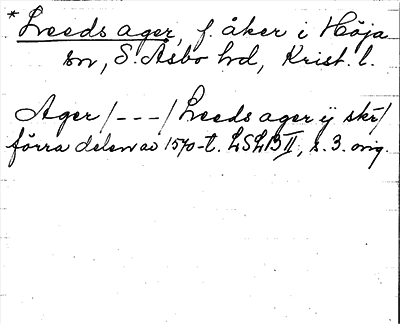 * Lveeds ager, f. åker i Höja
sn, S. Åsbo hd, Krist. l.
Ager /---/ Lveeds ager ij skr/
förra delen av 1570-t. LSLB II, s. 3. orig.